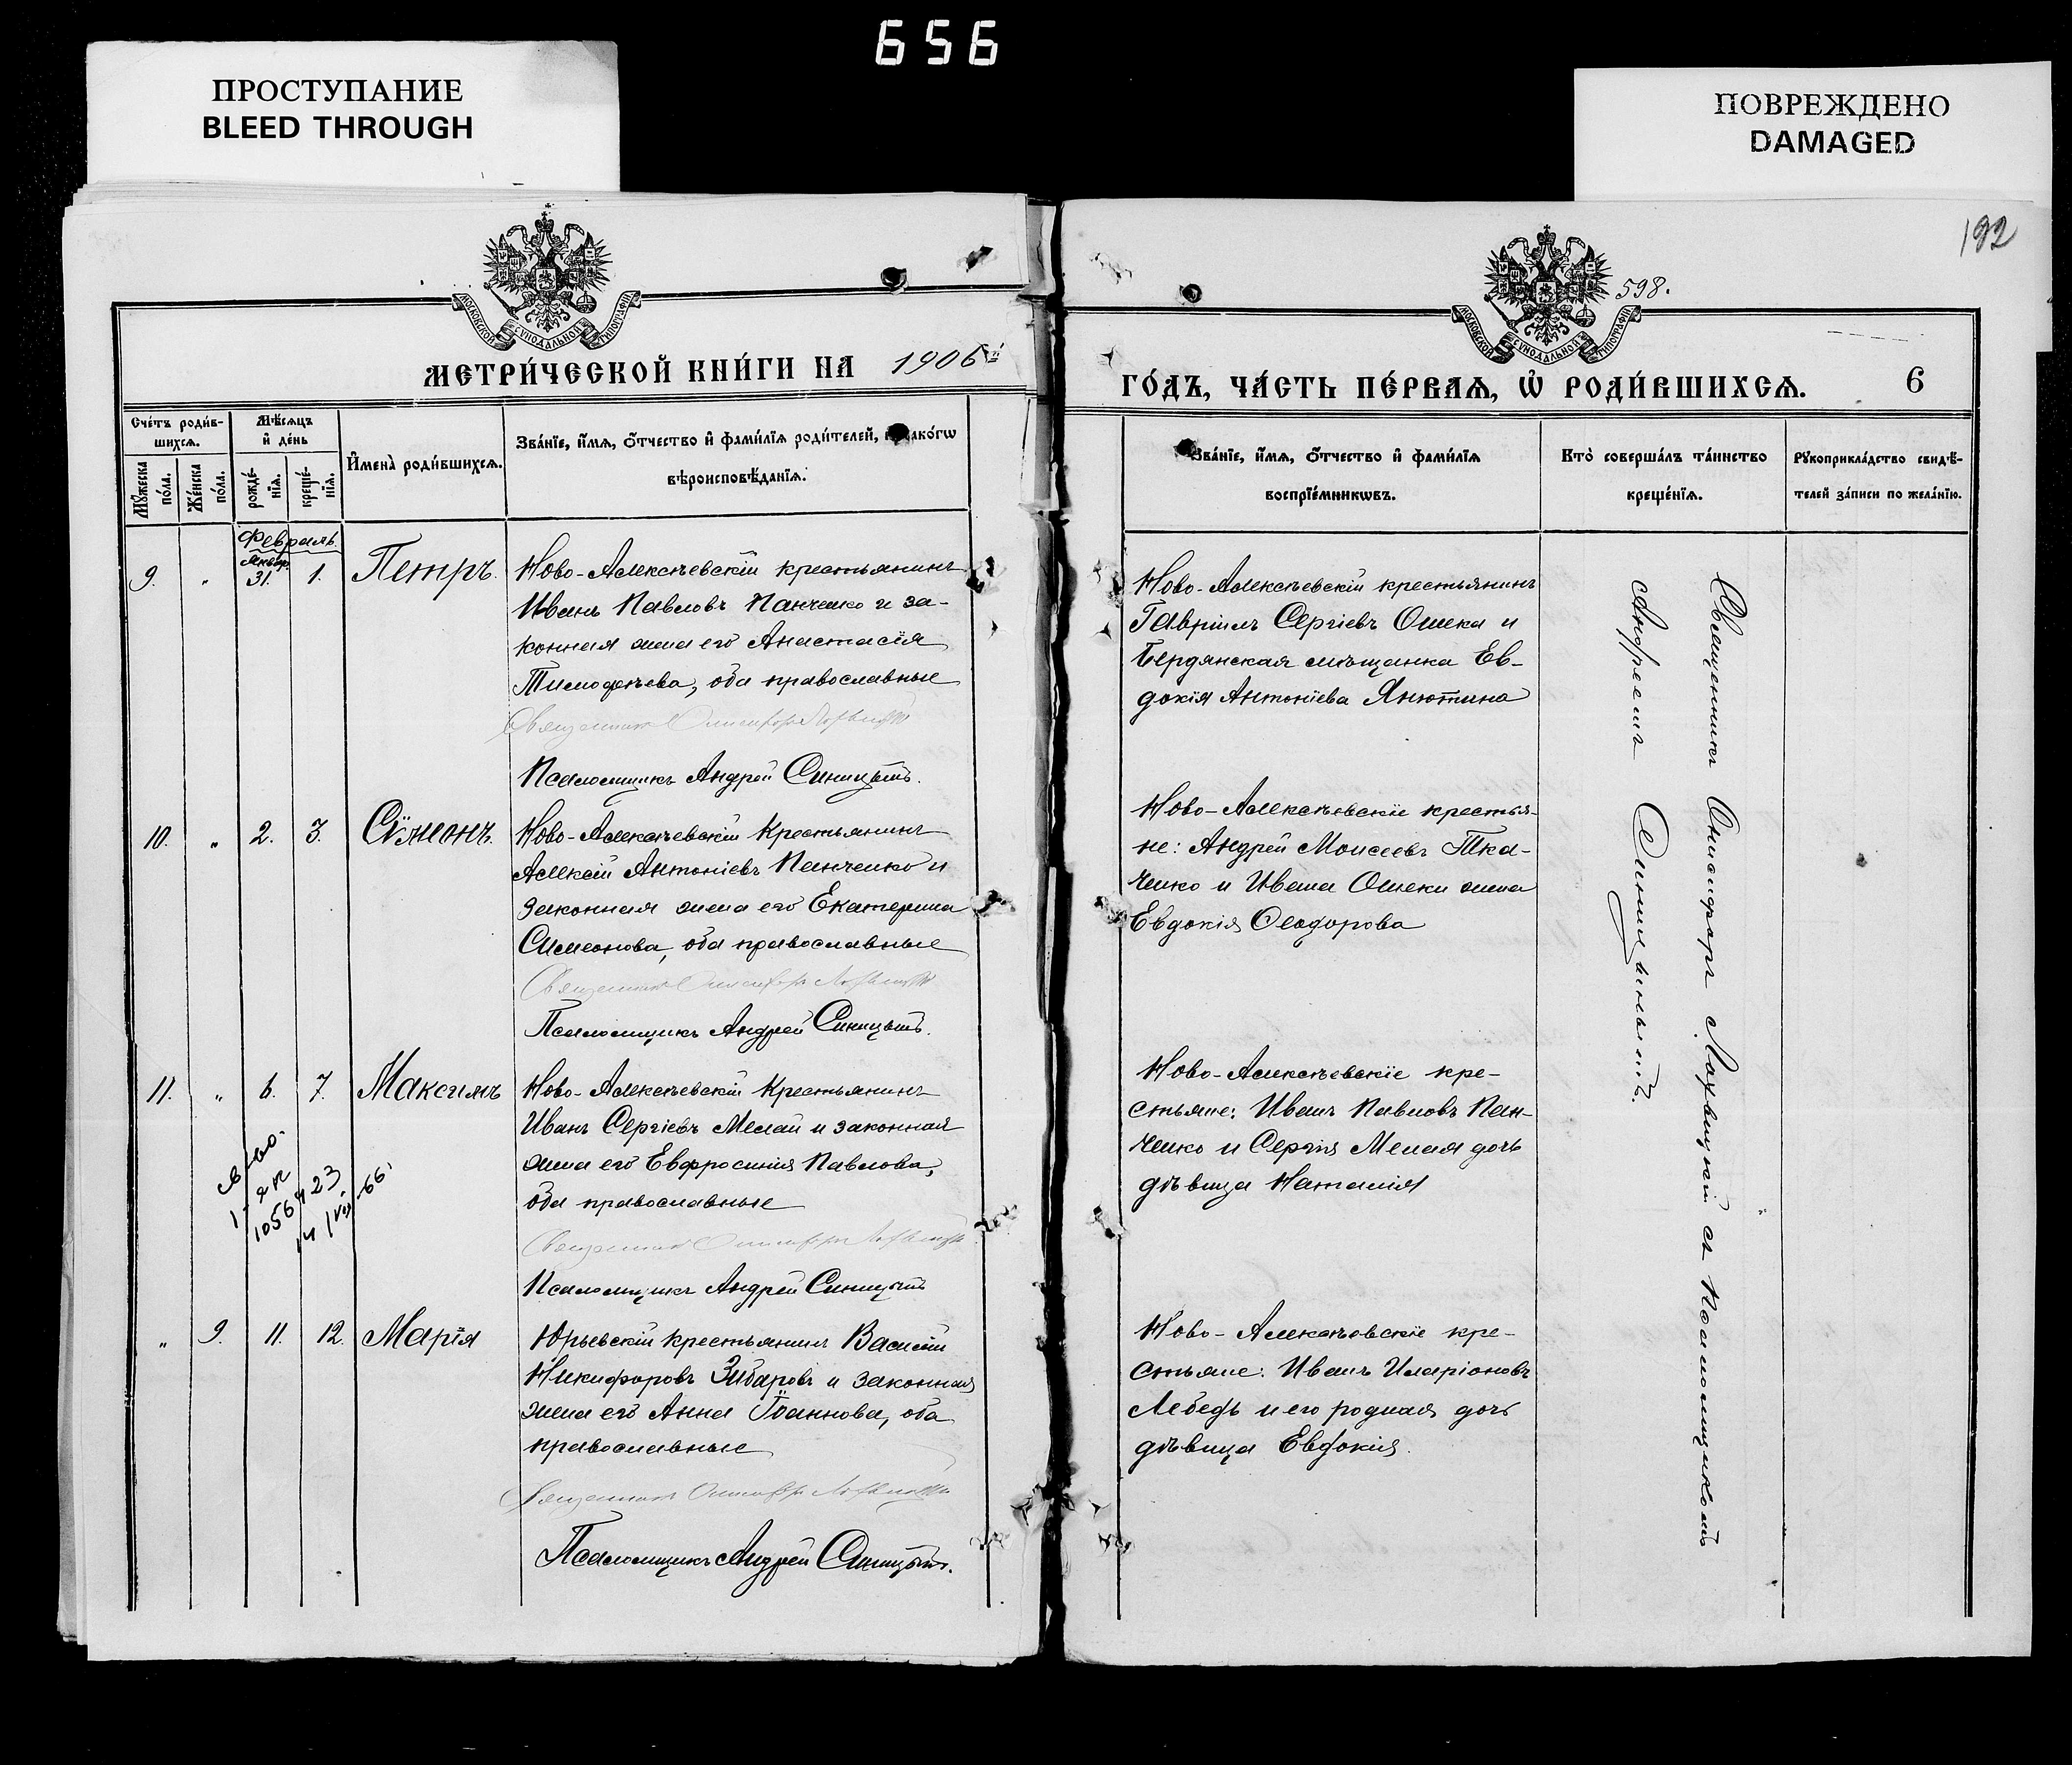 656
ПРОСТУПАНИЕ
BLEED THROUGH
ПОВРЕЖДЕНО
DAMAGED
192
598.
МОСКОВСКОЙ СѴНОДАЛЬНОЙ ТИПОГРАФІИ
МОСКОВСКОЙ СѴНОДАЛЬНОЙ ТИПОГРАФІИ
МЕТРИ́ЧЕСКОЙ КНИ́ГИ НА 1906й
ГО́ДЪ, ЧА́СТЬ ПЕ́РВАѦ, Ѡ҆ РОДИ́ВШИХСѦ.
6
Сче́тъ роди́в-
шихсѧ.
Мꙋ́жеска по́ла.
Же́нска по́ла.
Мѣ́сѧцъ
и҆ де́нь
рожде́-
нїѧ.
креще́-
нїѧ.
И҆мена̀ роди́вшихсѧ.
Зва́нїе, и҆́мѧ, о҆́тчество и҆ фами́лїѧ роди́телей, и҆ како́гѡ
вѣроисповѣ́данїѧ.
Зва́нїе, и҆́мѧ, о҆́тчество и҆ фами́лїѧ
воспрїе́мникѡвъ.
Кто̀ соверша́лъ та́инство
креще́нїѧ.
Рꙋкоприкла́дство свидѣ́-
телей за́писи по жела́нїю.
Февраль.
9. " Январ. 31. 1. Петръ.
Ново-Алексѣевскій крестьянинъ
Иванъ Павловъ Панченко и за-
конная жена его Анастасія
Тимоѳеева, оба православные
Священникъ Онисифоръ Лохвицкій
Псаломщикъ Андрей Синицынъ.
Ново-Алексѣевскій крестьянинъ
Гавріилъ Сергіевъ Ошека и
Бердянская мѣщанка Ев-
докія Антоніева Янютина
10. " 2. 3. Сѵмеонъ.
Ново-Алексѣевскій Крестьянинъ
Алексій Антоніевъ Панченко и
законная жена его Екатерина
Симеонова, оба православные
Священникъ Онисифоръ Лохвицкій
Псаломщикъ Андрей Синицынъ.
Ново-Алексѣевскіе крестья-
не: Андрей Моисеевъ Тка-
ченко и Ивана Ошеки жена
Евдокія Ѳеодорова
11. " 6. 7. Максимъ
Ново-Алексѣевскій Крестьянинъ
Иванъ Сергіевъ Мелай и законная
жена его Евфросинія Павлова,
оба православные
Священникъ Онисифоръ Лохвицкій
Псаломщикъ Андрей Синицынъ
св-во.
1-як
1056423
14/VII-66
Ново-Алексѣевскіе кре-
стьяне: Иванъ Павловъ Пан-
ченко и Сергія Мелая дочь
дѣвица Наталія
" 9. 11. 12. Марія
Юрьевскій крестьянинъ Василій
Никифоровъ Зибаровъ и законная
жена его Анна Іоаннова, оба
православные
Священникъ Онисифоръ Лохвицкій
Псаломщикъ Андрей Синицынъ.
Ново-Алексѣевскіе кре-
стьяне: Иванъ Иларіоновъ
Лебедь и его родная дочь
дѣвица Евдокія.
Священникъ Онисифоръ Лохвицкій съ Псаломщикомъ
Андреемъ Синицынымъ.